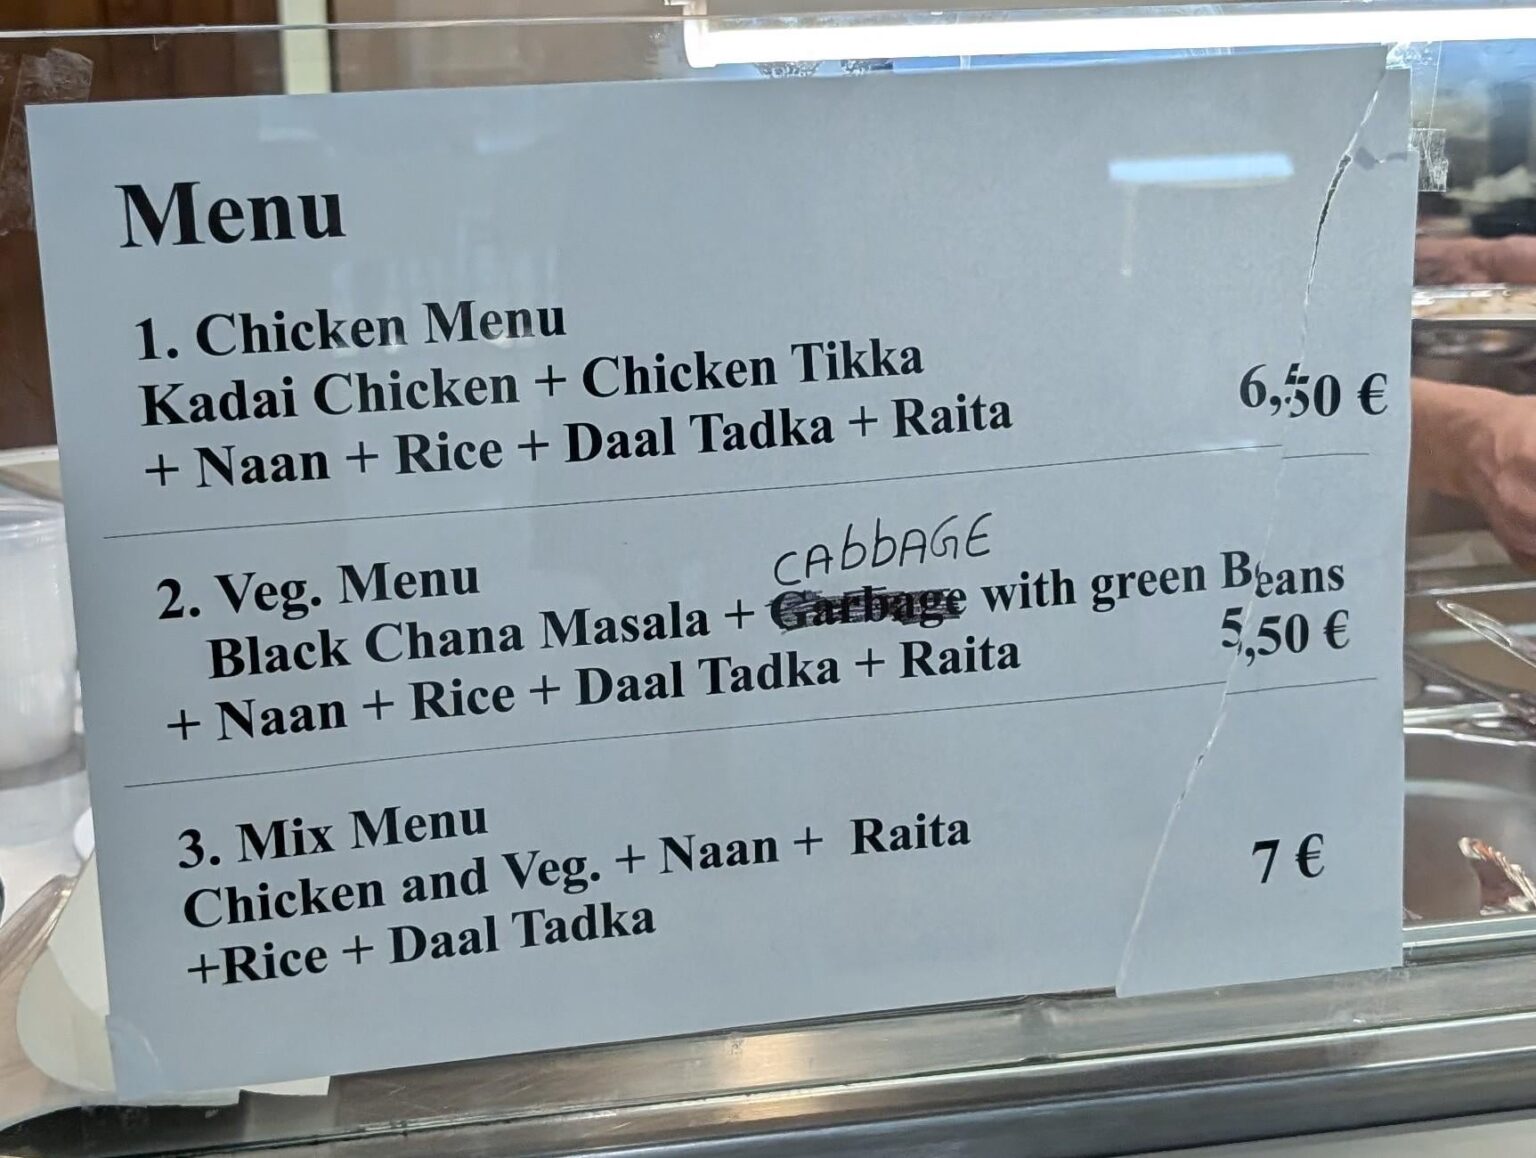 Menu
1. Chicken Menu
Kadai Chicken + Chicken Tikka
+ Naan + Rice + Daal Tadka + Raita
6,50 €
CAbbAGE
2. Veg. Menu
Black Chana Masala + Garbage with green Beans
5,50 €
+ Naan + Rice + Daal Tadka + Raita
3. Mix Menu
Chicken and Veg. + Naan + Raita
7 €
+Rice + Daal Tadka